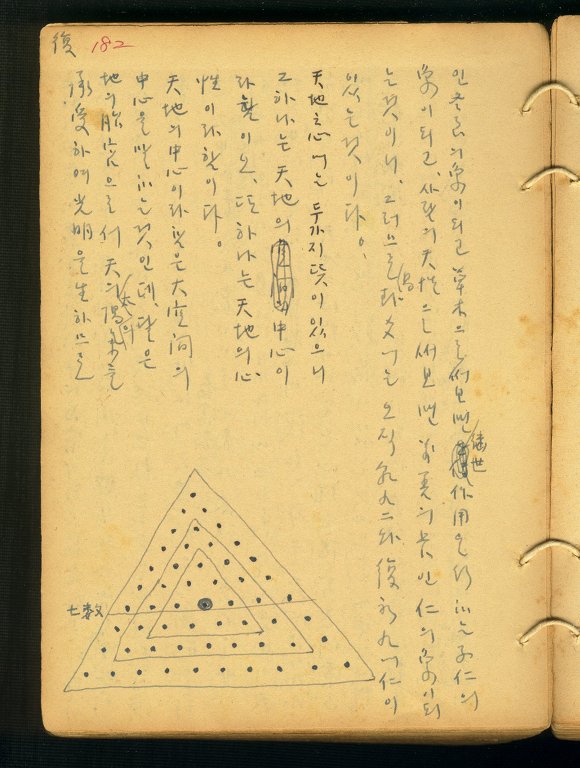 復 182
인 의 象이 되고 草木으로써 보면 傳世 作用을 行하는 子仁의
象이 되고, 사람의 天性으로써 보면 萬善의 本인 仁의 象이 되
는 것이니, 그러므로 에는 오직 九二와 復初九에 仁이
있는 것이다.
天地之心에는 두가지 뜻이 있으니
그 하나는 天地의 中心이
라 함이오, 또 하나는 天地의 心
性이라 함이다.
天地의 中心이라 함은 大空間의
中心을 말하는 것인데, 달은
地의 胎宮으로서 天의 太陽의 氣를
承受하여 光明을 生하므로
七数